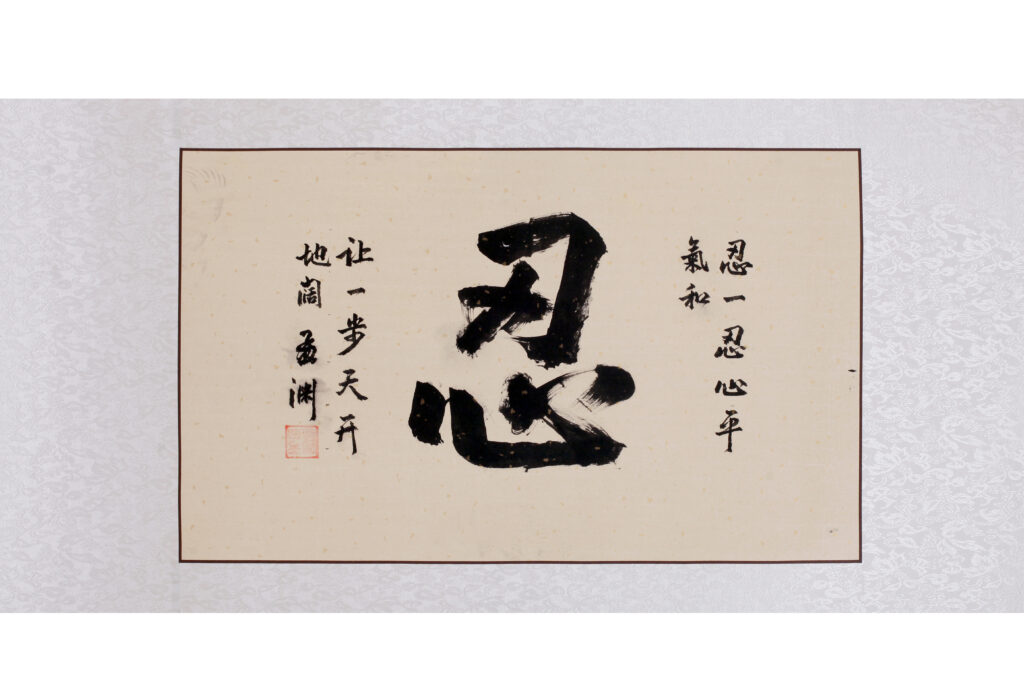 忍一忍心平
氣和
忍
让一步天开
地阔 渊